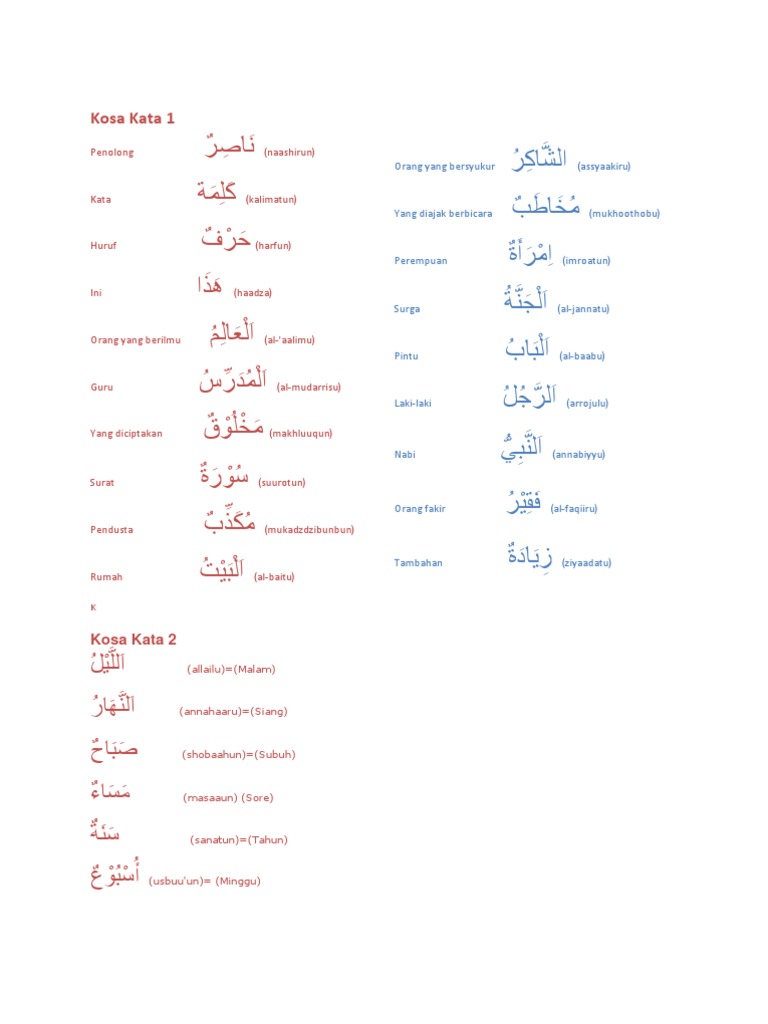 Kosa Kata 1
Penolong نَاصِرٌ (naashirun)
Kata كَلِمَة (kalimatun)
Huruf حَرْفٌ (harfun)
Ini هَذَا (haadza)
Orang yang berilmu اَلْعَالِمُ (al-'aalimu)
Guru اَلْمُدَرِّسُ (al-mudarrisu)
Yang diciptakan مَخْلُوْقٌ (makhluuqun)
Surat سُوْرَةٌ (suurotun)
Pendusta مُكَذِّبٌ (mukadzdzibunbun)
Rumah اَلْبَيْتُ (al-baitu)
K
Orang yang bersyukur الشَّاكِرُ (assyaakiru)
Yang diajak berbicara مُخَاطَبٌ (mukhoothobu)
Perempuan اِمْرَأَةٌ (imroatun)
Surga اَلْجَنَّةُ (al-jannatu)
Pintu اَلْبَابُ (al-baabu)
Laki-laki اَلرَّجُلُ (arrojulu)
Nabi اَلنَّبِيُّ (annabiyyu)
Orang fakir فَقِيْرُ (al-faqiiru)
Tambahan زِيَادَةٌ (ziyaadatu)
Kosa Kata 2
اَللَّيْلُ (allailu)=(Malam)
اَلنَّهَارُ (annahaaru)=(Siang)
صَبَاحٌ (shobaahun)=(Subuh)
مَسَاءٌ (masaaun) (Sore)
سَنَةٌ (sanatun)=(Tahun)
أُسْبُوْعٌ (usbuu'un)= (Minggu)